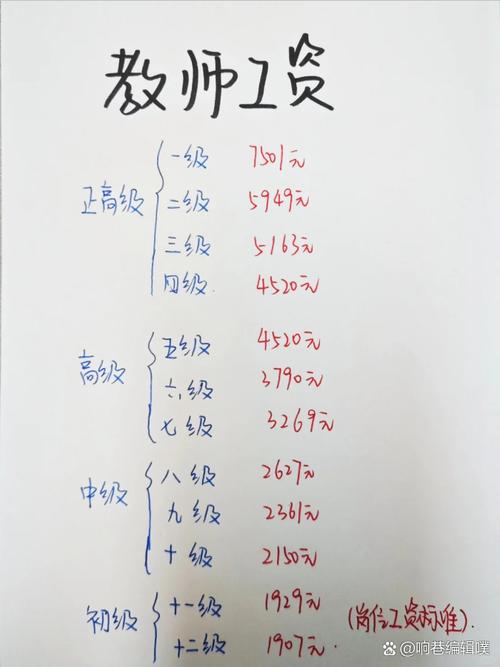 教师工资
正高级
一级 7501元
二级 5949元
三级 5163元
四级. 4520元
高级
五级 4520元
六级 3790元
七级 3269元
中级
八级 2627元
九级 2361元
十级 2150元
初级
十一级 1929元
十二级 1907元
(岗位工资标准).
@响巷编辑噗